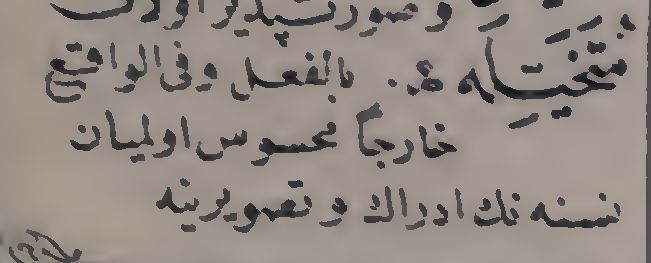 وصورتپذير اولان
متخيّله ع. بالفعل وفى الواقع
خارجاً محسوس اولميان
نسنه نك ادراك و تصويرينه